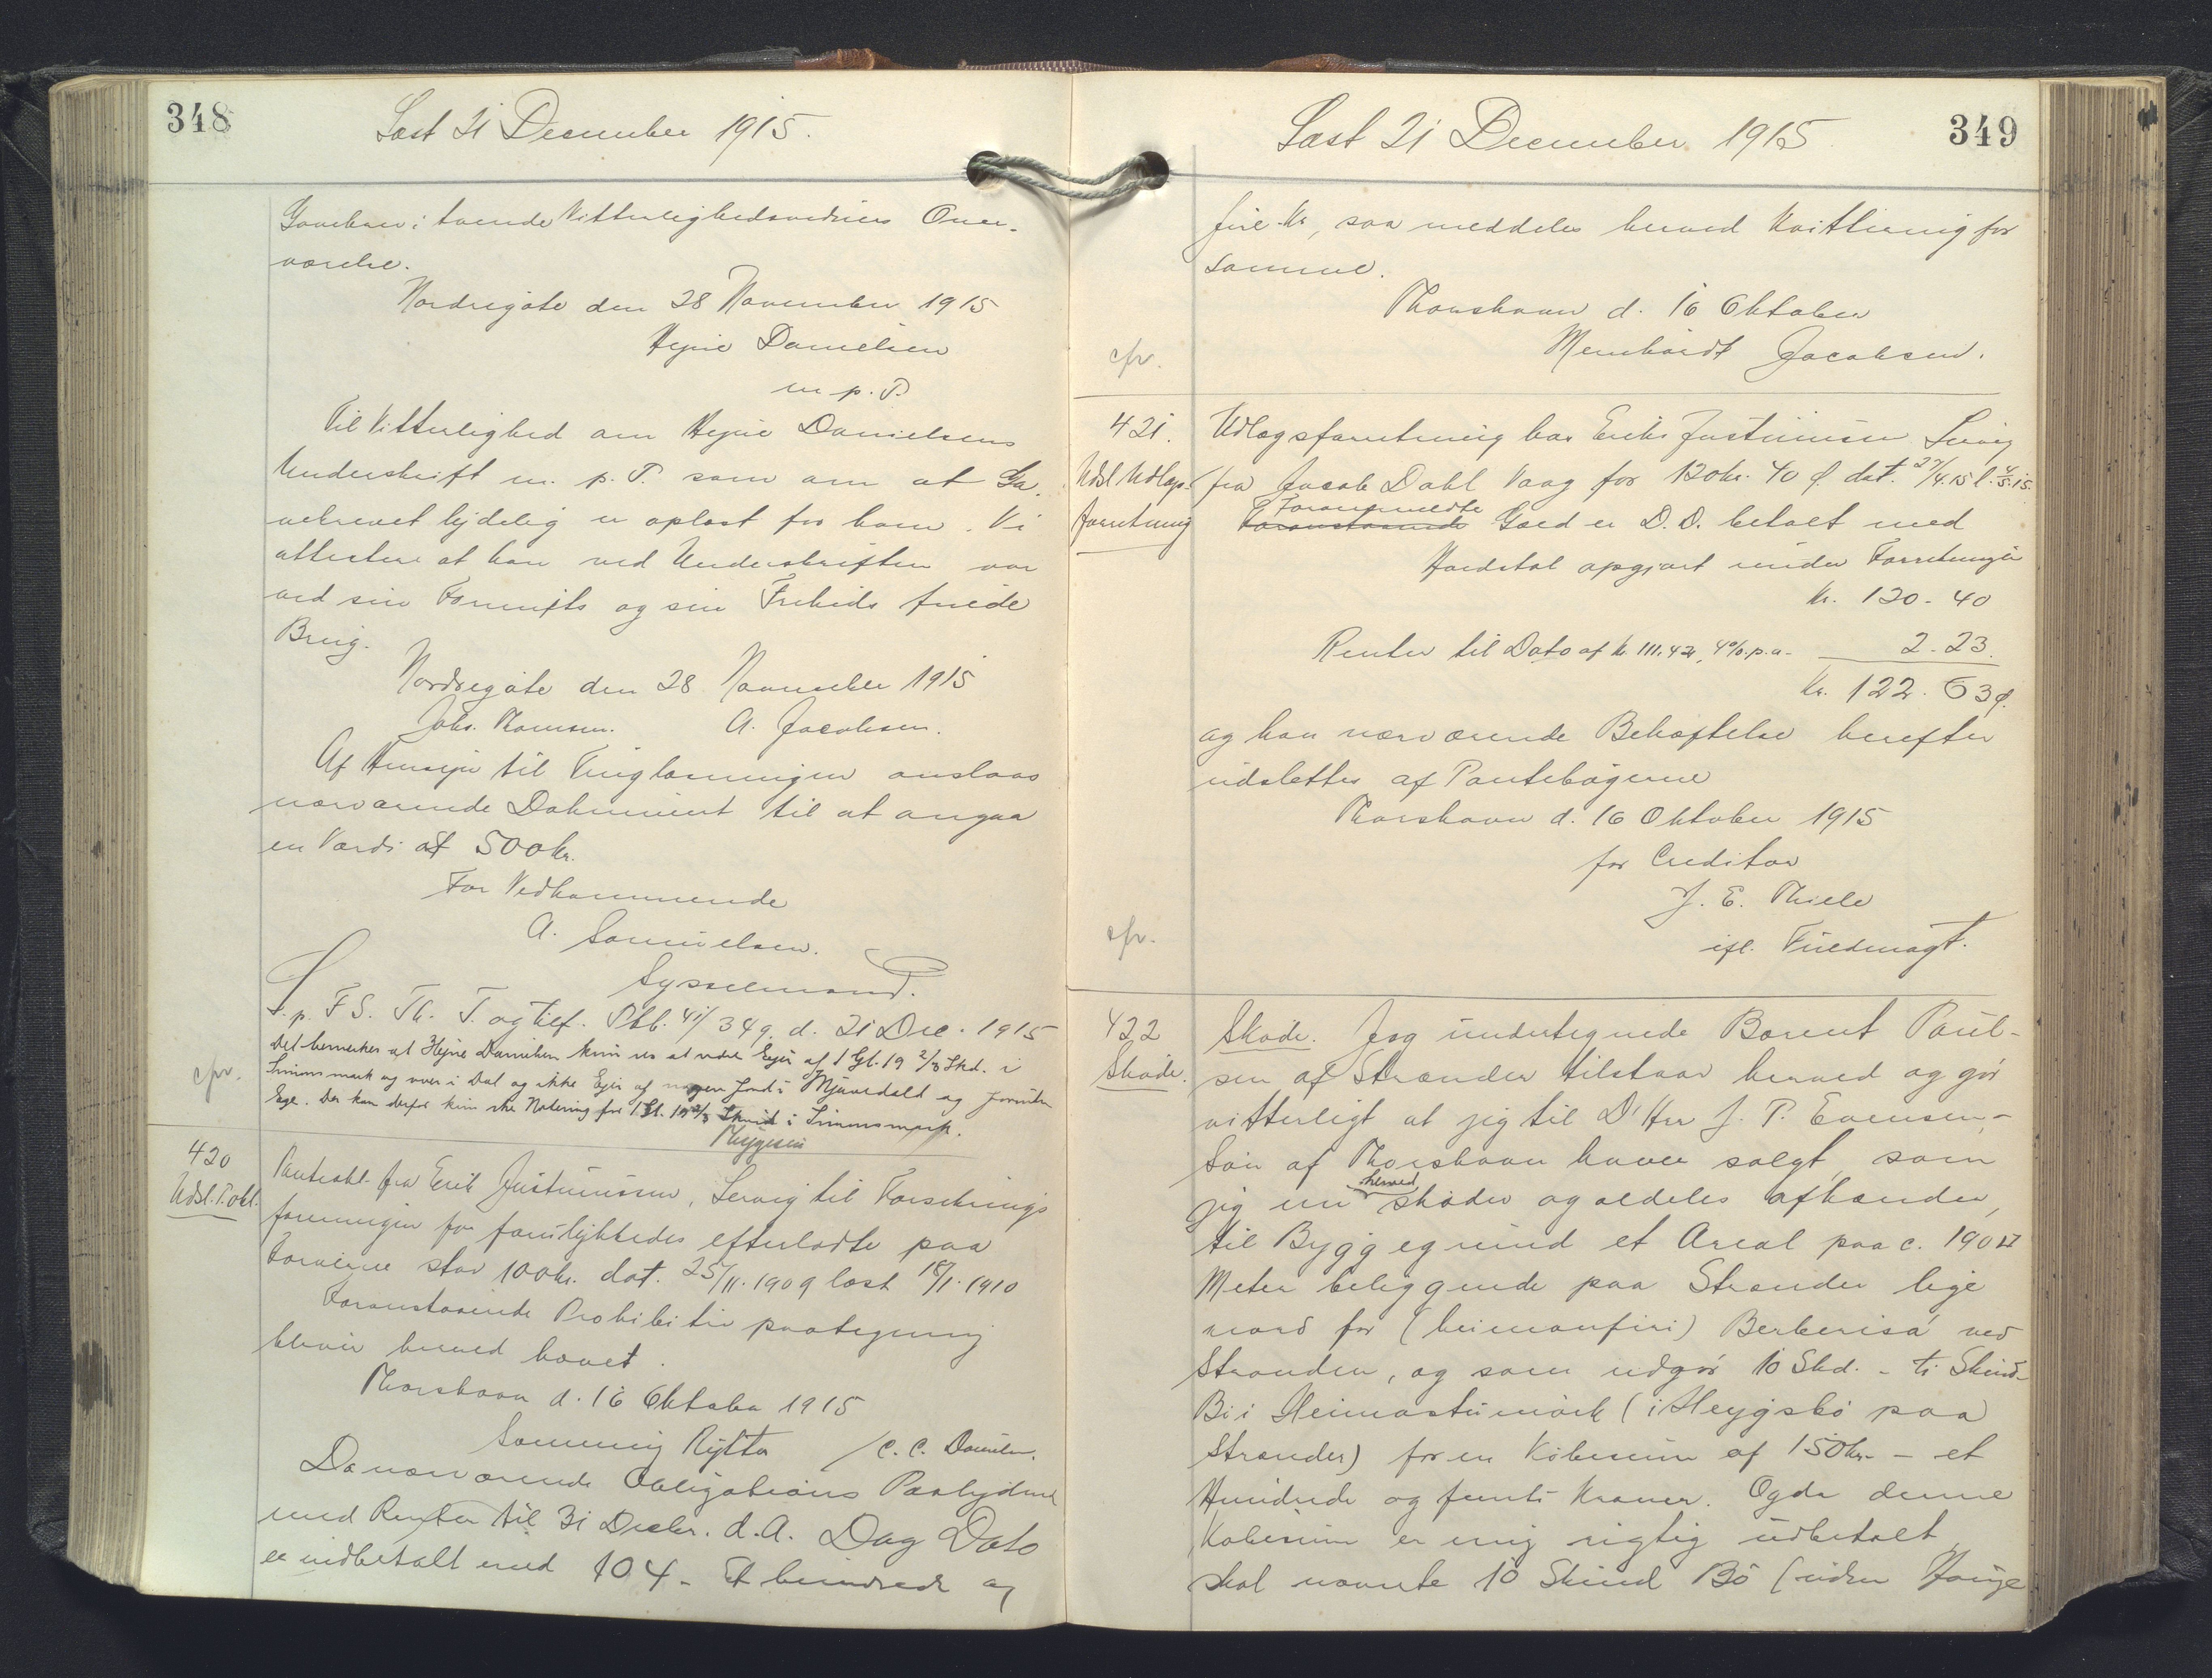 348
Læst 21 December 1915.
Gavebrev i tvende Vitterlighedsvidners Over-
værelse.
Nordregøte den 28 November 1915
Hejne Danielsen
m. p. P.
Til Vitterlighed om Hejne Danielsens
Underskrift m. p. P. som om at Ga-
vebrevet lydelig er oplæst for ham. Vi
attestere at han ved Underskriften var
ved sin Fornufts og sin Friheds fuede
Brug.
Nordregøte den 28 November 1915
Johs. Thomsen. A. Jacobsen.
Af Hensyn til Tinglæsningen anslaas
nærværende Dokument til at angaa
en Værdi af 500 kr.
For Vedkommende
A. Samuelsen.
Sysselmand.
L. p. F. S. Th. T. og tilf. Pbb. 41/349, d. 21 Dec. 1915
Det bemærkes at Hejne Danielsen kun ses at være Ejer af 1 Gl. 19 2/3 Skd. i
cfr.
Simunsmark og over i Dal og ikke Ejer af nogen Jord i Mjavedald og foruden
Ege. Der kan derfor kun ske Notering for 1 Gl. 19 2/3 Skind i Simunsmark.
Thygesen
420
Udsl. P. obl.
Panteobl. fra Erik Justinussen, Lervig til Forsikrings
foreningen for forulykkedes efterladte paa
Færøerne stor 100 kr. dat. 25/11. 1909 læst 18/1. 1910
Foranstaaende Prohibitiv paategning
bliver herved hævet.
Thorshavn d. 16 Oktober 1915
Sømning Rytter / C. C. Danielsen.
Da nærværende Obligations Paalydende
med Renter til 31 Decbr. d. A. Dag Dato
er indbetalt med 104 - Et hundrede og
349
Læst 21 December 1915
fire Kr, saa meddeles herved Kvittering for
samme.
Thorshavn d. 16 Oktober
Meinhardt Jacobsen.
cfr.
421.
Udsl Udlægs-
forretning
Udlægsforretning hos Erik Justinussen Lervig
fra Jacob Dahl Vaag for 120 kr. 40 ø. dat. 27/4.15 l. 4/5.15.
Foranmeldte
Foranstaaende Gæld er D. D. betalt med
Hovdstol opgjort under Forretningen
Kr. 120 - 40
Renter til Dato af kr. 111.42, 4% p. a. - 2 - 23.
Kr. 122. 63 ø.
og kan nærværende Behæftelse herefter
udslettes af Pantebøgerne
Thorshavn d. 16 Oktober 1915
for Creditor
J. E. Thiele
ifl. Fuldmagt.
cfr.
422
Skøde.
Skøde. Jeg undertegnede Barent Poul-
sen af Strænder tilstaar herved og gør
vitterligt at jeg til D'Hrr J. P. Evensen -
Søn af Thorshavn haver solgt, som
herved
jeg nu skøder og aldeles afhænder,
til Byggegrund et Areal paa c. 190 □
Meter beliggende paa Strænder lige
nord for (heimanfiri) Berberisá ved
Stranden, og som udgør 10 Skd. - ti Skind
Bö i Heimastumörk (i Heygsbö paa
Strænder) for en Købesum af 150 kr. - et
Hundrede og femti Kroner. Og da denne
Købesum er mig rigtig udbetalt,
skal nævnte 10 Skind Bö (uden Hauge